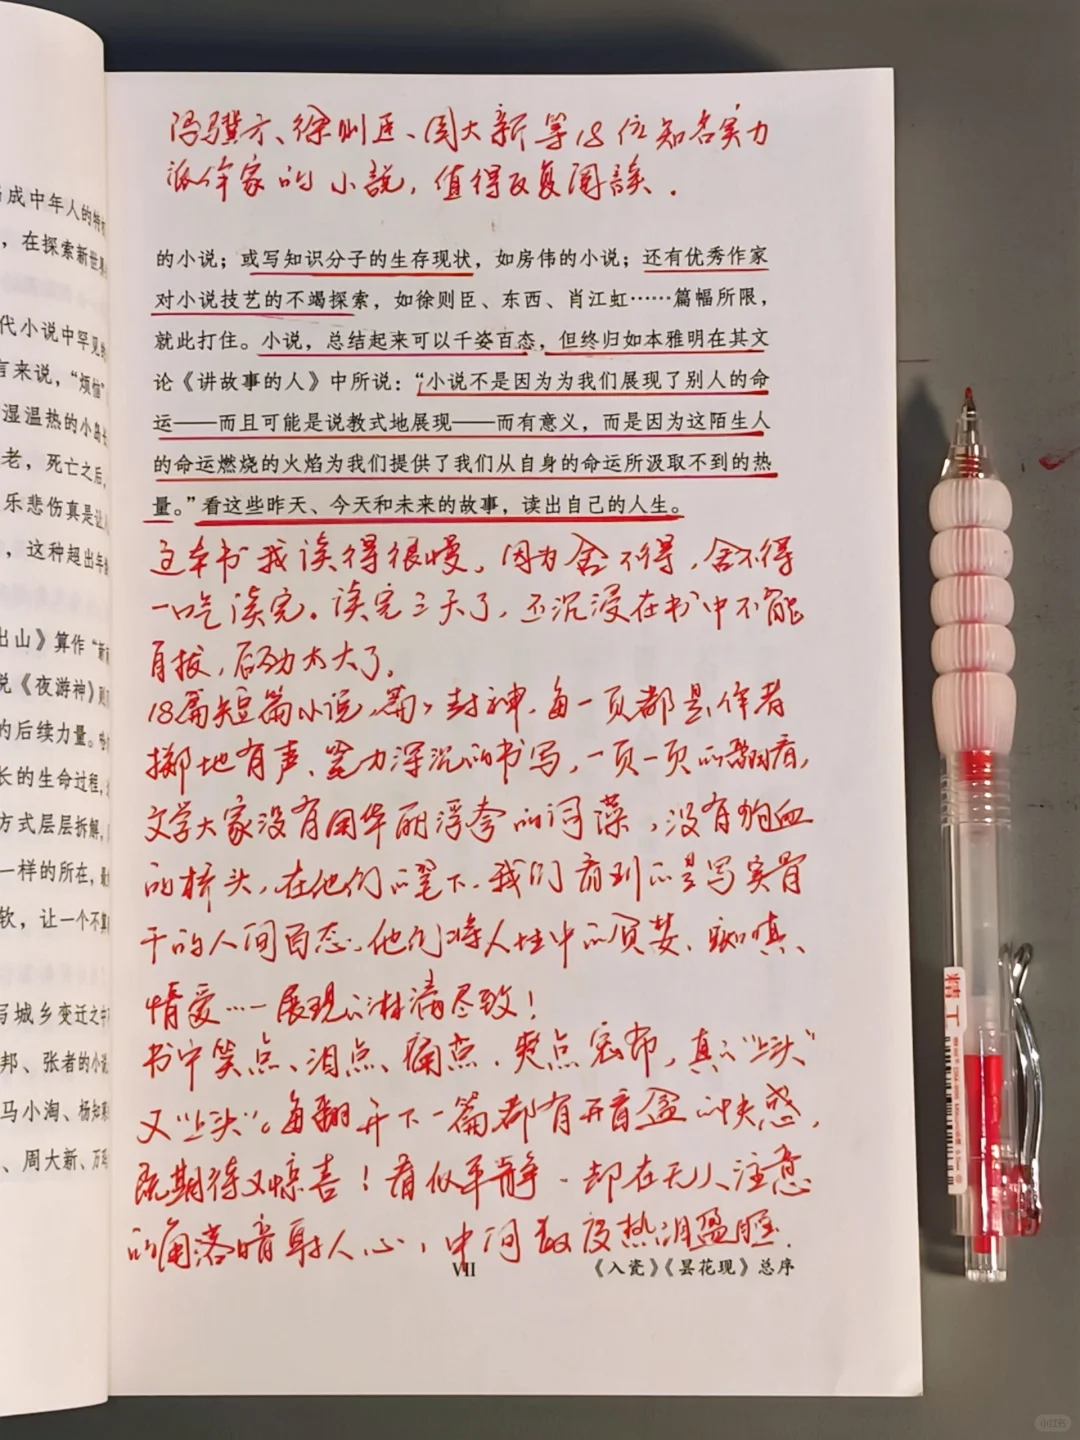 冯骥才、徐则臣、周大新等18位知名实力
派作家的小说，值得反复阅读．
的小说；或写知识分子的生存现状，如房伟的小说；还有优秀作家
对小说技艺的不竭探索，如徐则臣、东西、肖江虹……篇幅所限，
就此打住。小说，总结起来可以千姿百态，但终归如本雅明在其文
论《讲故事的人》中所说：“小说不是因为为我们展现了别人的命
运——而且可能是说教式地展现——而有意义，而是因为这陌生人
的命运燃烧的火焰为我们提供了我们从自身的命运所汲取不到的热
量。”看这些昨天、今天和未来的故事，读出自己的人生。
这本书我读得很慢，因为舍不得，舍不得
一口气读完。读完三天了，还沉浸在书中不能
自拔，后劲太大了。
18篇短篇小说，篇々封神，每一页都是作者
掷地有声、笔力深沉的书写，一页一页的翻看，
文学大家没有用华丽浮夸的词藻，没有狗血
的桥头，在他们的笔下，我们看到的是写实骨
干的人间百态，他们将人性中的贪婪、痴嗔、
情爱…一展现的淋漓尽致！
书中笑点、泪点、痛点、爽点密布，真的“上头”
又“上头”，每翻开下一篇都有开盲盒的快感，
既期待又惊喜！看似平静，却在无人注意
的角落暗射人心，中间数度热泪盈眶．
VII
《入瓷》《昙花现》总序
成中年人的特
，在探索新世
代小说中罕见
言来说，“烦恼”
湿温热的小岛
老，死亡之后，
乐悲伤真是
，这种超出年
出山》算作“新
说《夜游神》
的后续力量。
长的生命过程，
方式层层拆解，
一样的所在，
软，让一个不
写城乡变迁之
邦、张者的小说
马小淘、杨知寒
、周大新、万
精工
小红书